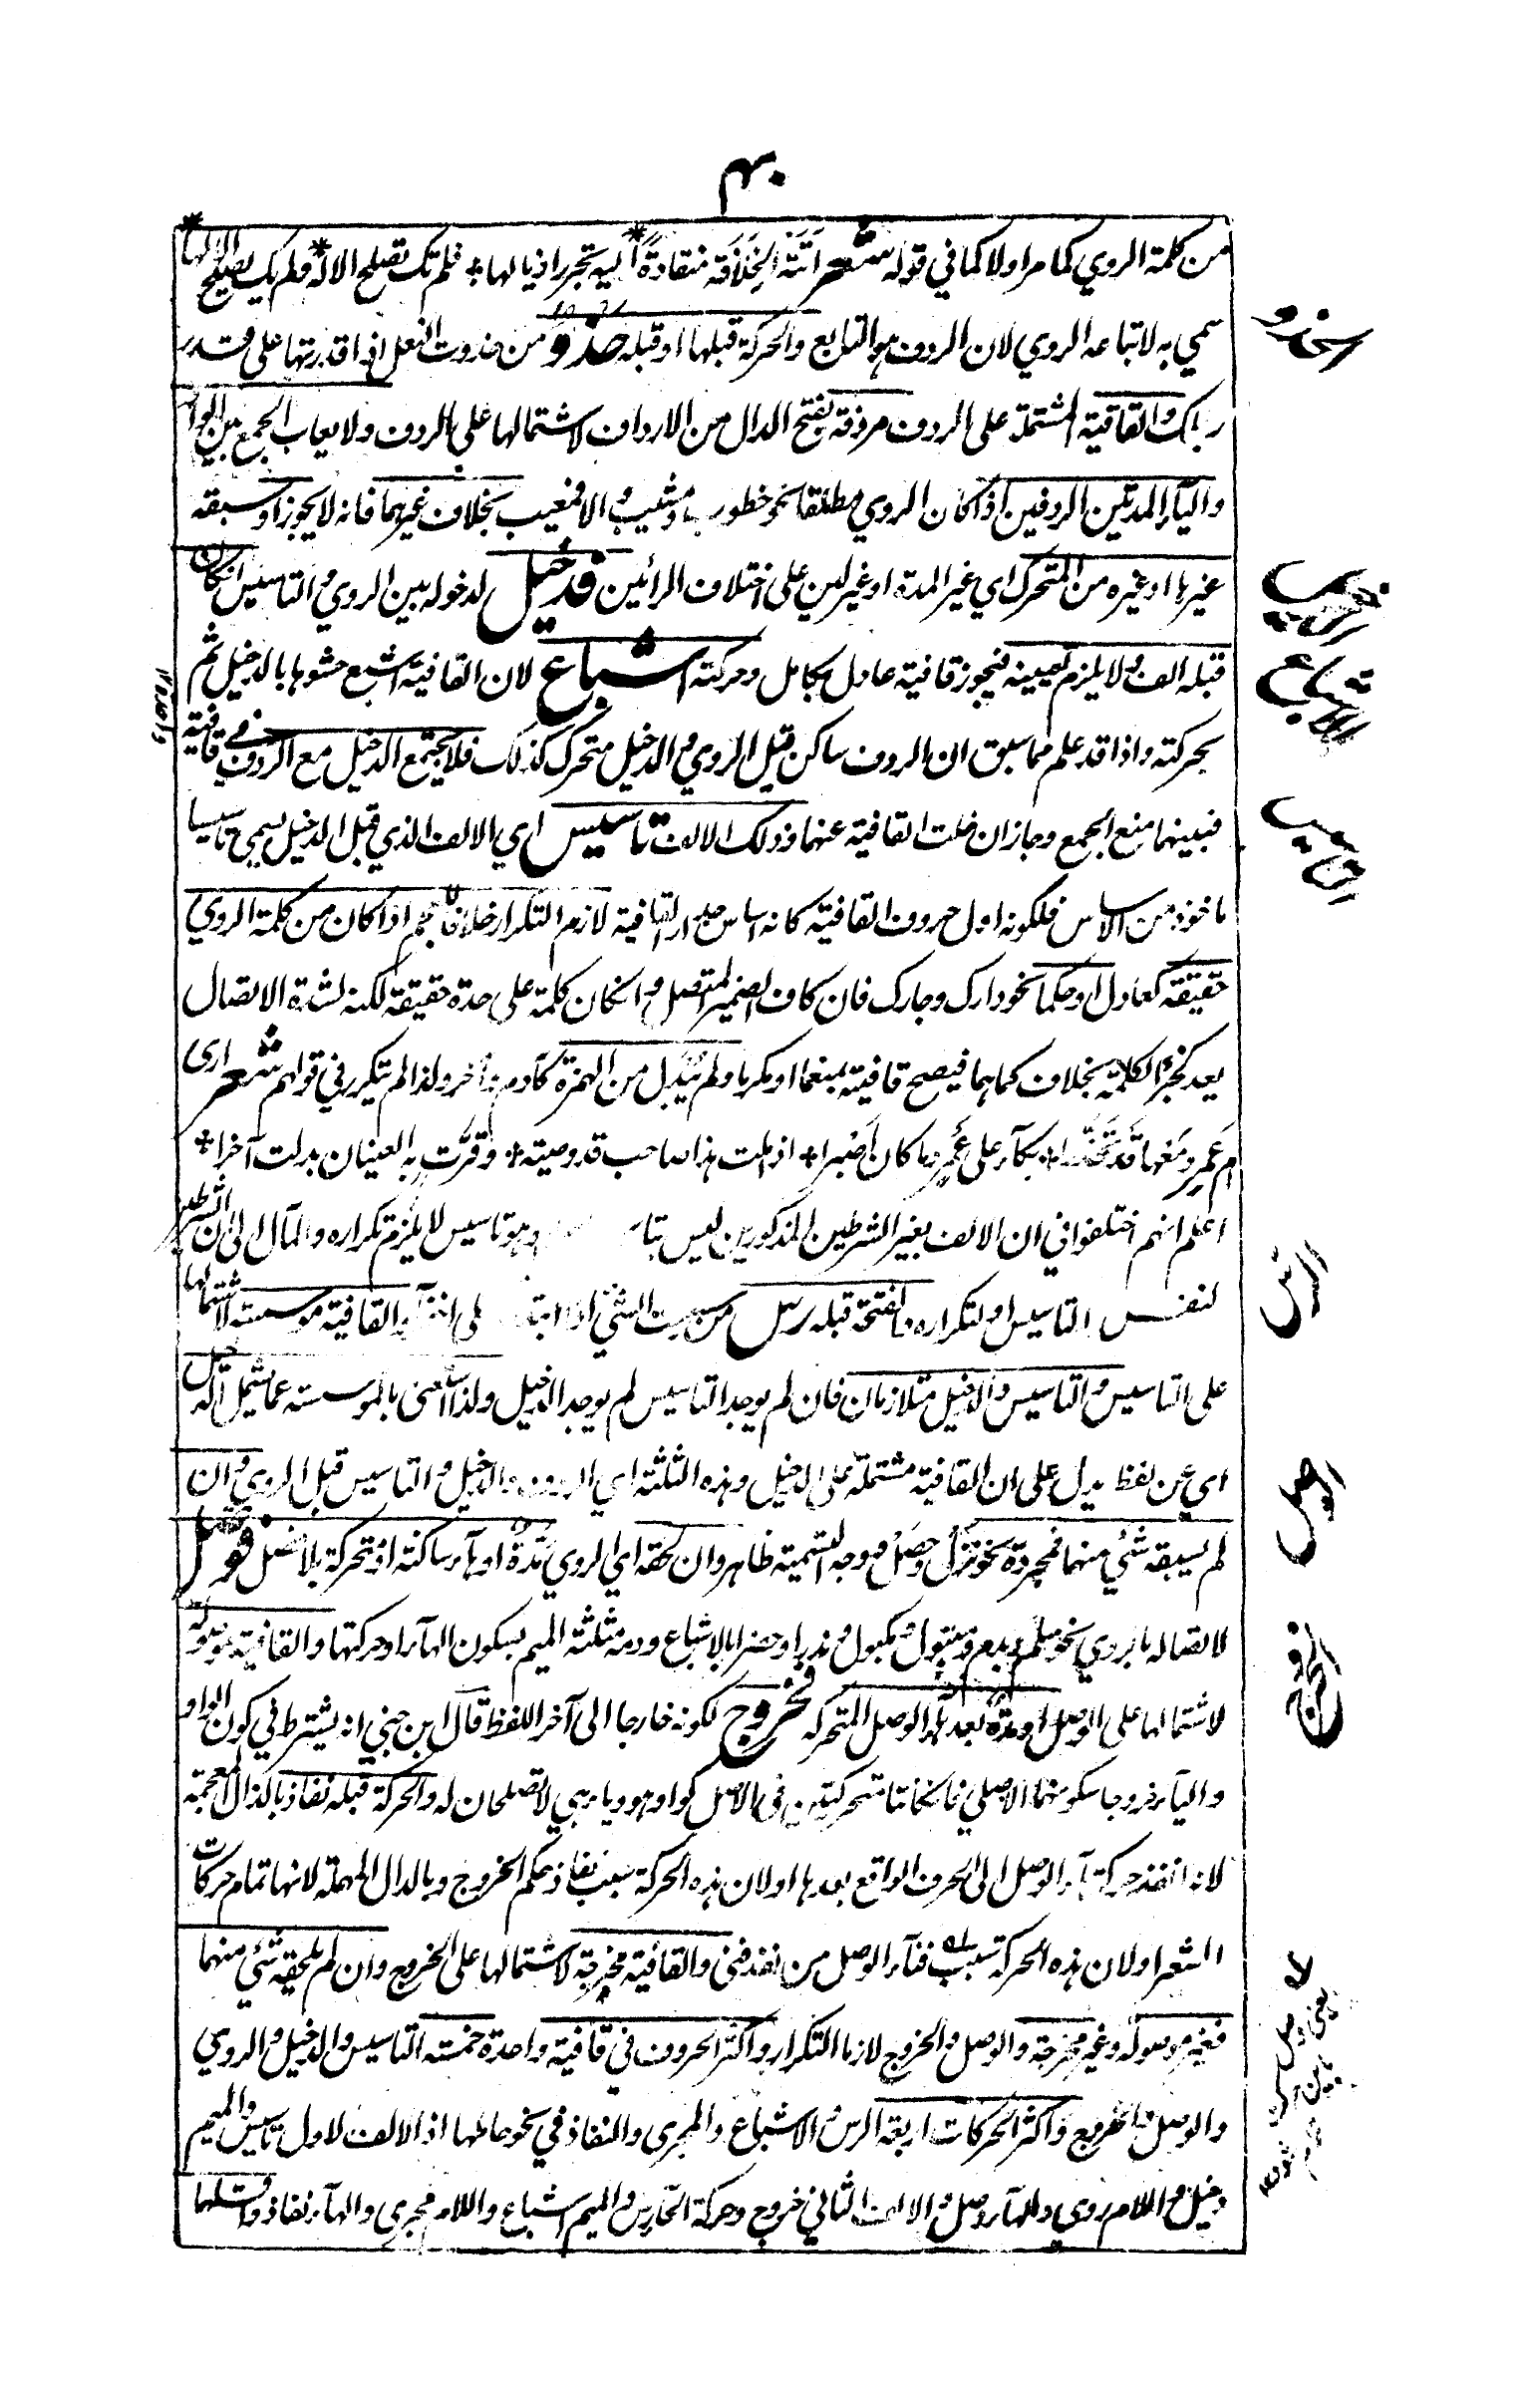 ۴۰
من كلمة الروي كما مر اولا كما في قوله شعر اَتَتْهُ الخِلَافَة منقادةً * اليه تجرر اذيالها * فلم تك تصلح الا له * ولم يك يصلح الا لها *
سمي به لاتباعه الروي لان الردف هو التابع والحركة قبلها او قبله حذو من حذوت النعل اذا قدرتها على قدر
رجلك والقافية المشتملة على الردف مردفة بفتح الدال من الارداف لاشتمالها على الردف ولا يعاب الجمع بين الواو
والياء المدتين الردفين اذا كان الروي مطلقا نحو خطوب ومشيب والا فمعيب بخلاف غيرهما فانه لا يجوز او سبقه
غيرها او غيره من المتحرك اي غير المدة او غير لين على اختلاف الرائين فدخيل لدخوله بين الروي والتاسيس ان كان
قبله الف ولا يلزم تعيينه فيجوز قافية عادل بكامل وحركته اشباع لان القافية اشبع حشوها بالدخيل ثم
بحركته واذا قد علم مما سبق ان الردف ساكن قبل الروي والدخيل متحرك كذلك فلا يجتمع الدخيل مع الردف في قافية
واحدة
فبينهما منع الجمع وجاز ان خلت القافية عنهما وذلك الالف تاسيس اي الالف الذي قبل الدخيل يسمى تاسيسا
ماخوذ من الاساس فلكونه اول حروف القافية كانه اساس جدار القافية لازم التكرار خلافا للعجم اذا كان من كلمة الروي
حقيقة كعادل او حكما نحو دارك وجارك فان كاف الضمير المتصل وان كان كلمة على حدة حقيقة لكنه لشدة الاتصال
يعد كجزء الكلمة بخلاف كما هما فيصح قافية بمنعما او مكرما ولم يُبدل من الهمزة كآدم وآخر ولذا لم يتكرر في قولهم شعر ارى
ام عَمرٍو دمعها قد تَحَدَّرا * بكآء على عمرٍو وما كان اَصْبرا * اذا قلت هذا صاحب قد رضيته * وقرّت به العينان بدلت آخرا *
اعلم انهم اختلفوا في ان الالف بغير الشرطين المذكورين ليس وهو تاسيس لا يلزم تكراره والمآل الى ان الشرطين
لنفس التاسيس او لتكراره والفتحة قبله رس من رست الشئ اذا والقافية موسسة لاشتمالها
على التاسيس والتاسيس والدخيل متلازمان فان لم يوجد التاسيس لم يوجد الدخيل ولذا استغنى بالموسسة عما يشمل الدخيل
اي عن لفظ يدل على ان القافية مشتملة على الدخيل وهذه الثلثة اي الردف والدخيل والتاسيس قبل الروي وان
لم يسبقه شئ منهما فمجردة نحو نزل وحَصَل ووجه التسمية ظاهر وان لحقه اي الروي مدةٌ او هآء ساكنة او متحركة بلا فصل فوصل
لاتصاله بالروي نحو ومتبول ومكبول بالاشباع ودمه مثلثة الميم بسكون الهآء او حركتها والقافية موصولة
لاشتمالها على الوصل او مدةٌ بعد هآء الوصل المتحركة فخروج لكونه خارجا الى آخر اللفظ قال ابن جني انه يشترط في كون الواو
والياء خروجا سكونهما الاصلي فان كانتا متحركتين في الاصل كواو هو وياء هي لا تصلحان له والحركة قبله نفاذ بالذال المعجمة
لانه انفذ حركة هآء الوصل الى الحرف الواقع بعدها او لان هذه الحركة سبب نفاذ حكم الخروج وبالدال المهملة لانها تمام حركات
الشعر او لان هذه الحركة تسبب فنآء الوصل من نفد فنى والقافية مخرجة لاشتمالها على الخروج وان لم يلحقه شئ منهما
فغير موصولة وغير مخرجة والوصل والخروج لازما التكرار واكثر الحروف في قافية واحدة خمسة التاسيس والدخيل والروي
والوصل والخروج واكثر الحركات اربعة الرس والاشباع والمجرى والنفاذ في نحو حاملها اذ الالف الاول تاسيس والميم
دخيل واللام روي والهآء وصل والالف الثاني خروج وحركة الحآء رس والميم اشباع واللام مجرى والهآء نفاذ واقلها
الحذو
الدخيل
الاشباع
التاسيس
الرس
الوصل
الخروج